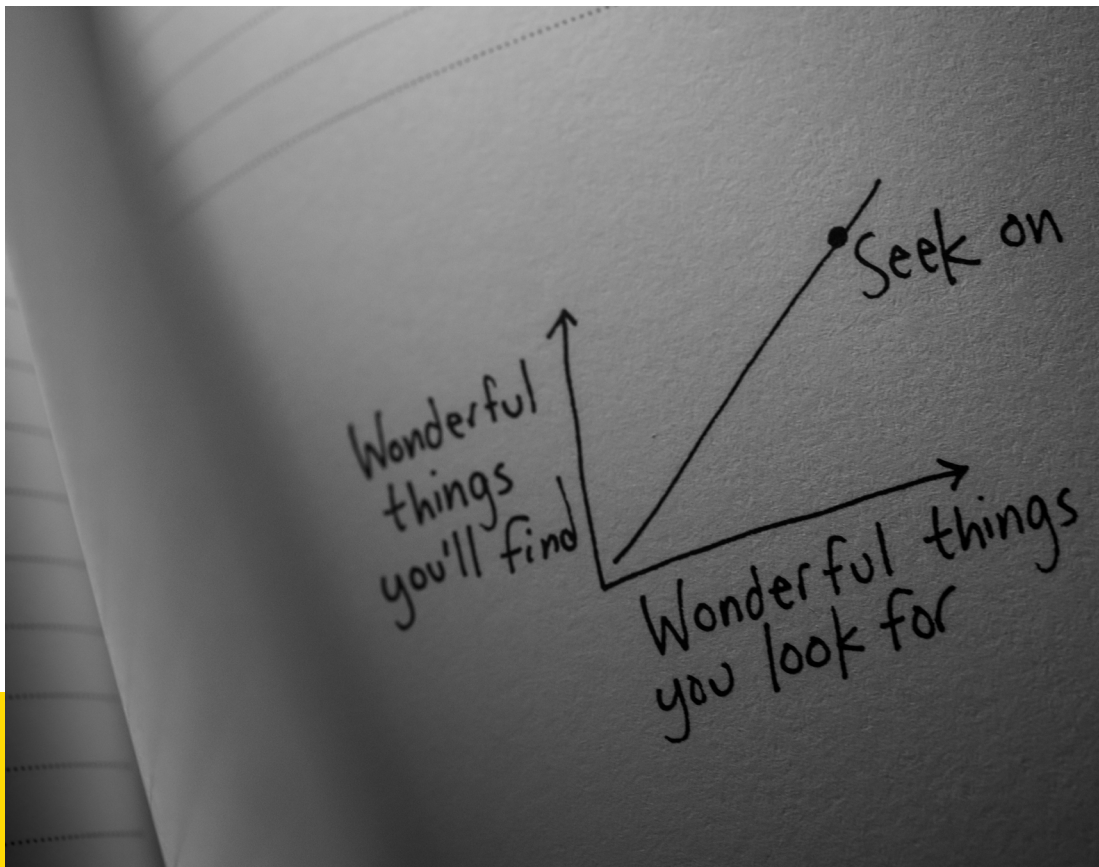 Seek on
Wonderful
things
you'll find
Wonderful things
you look for